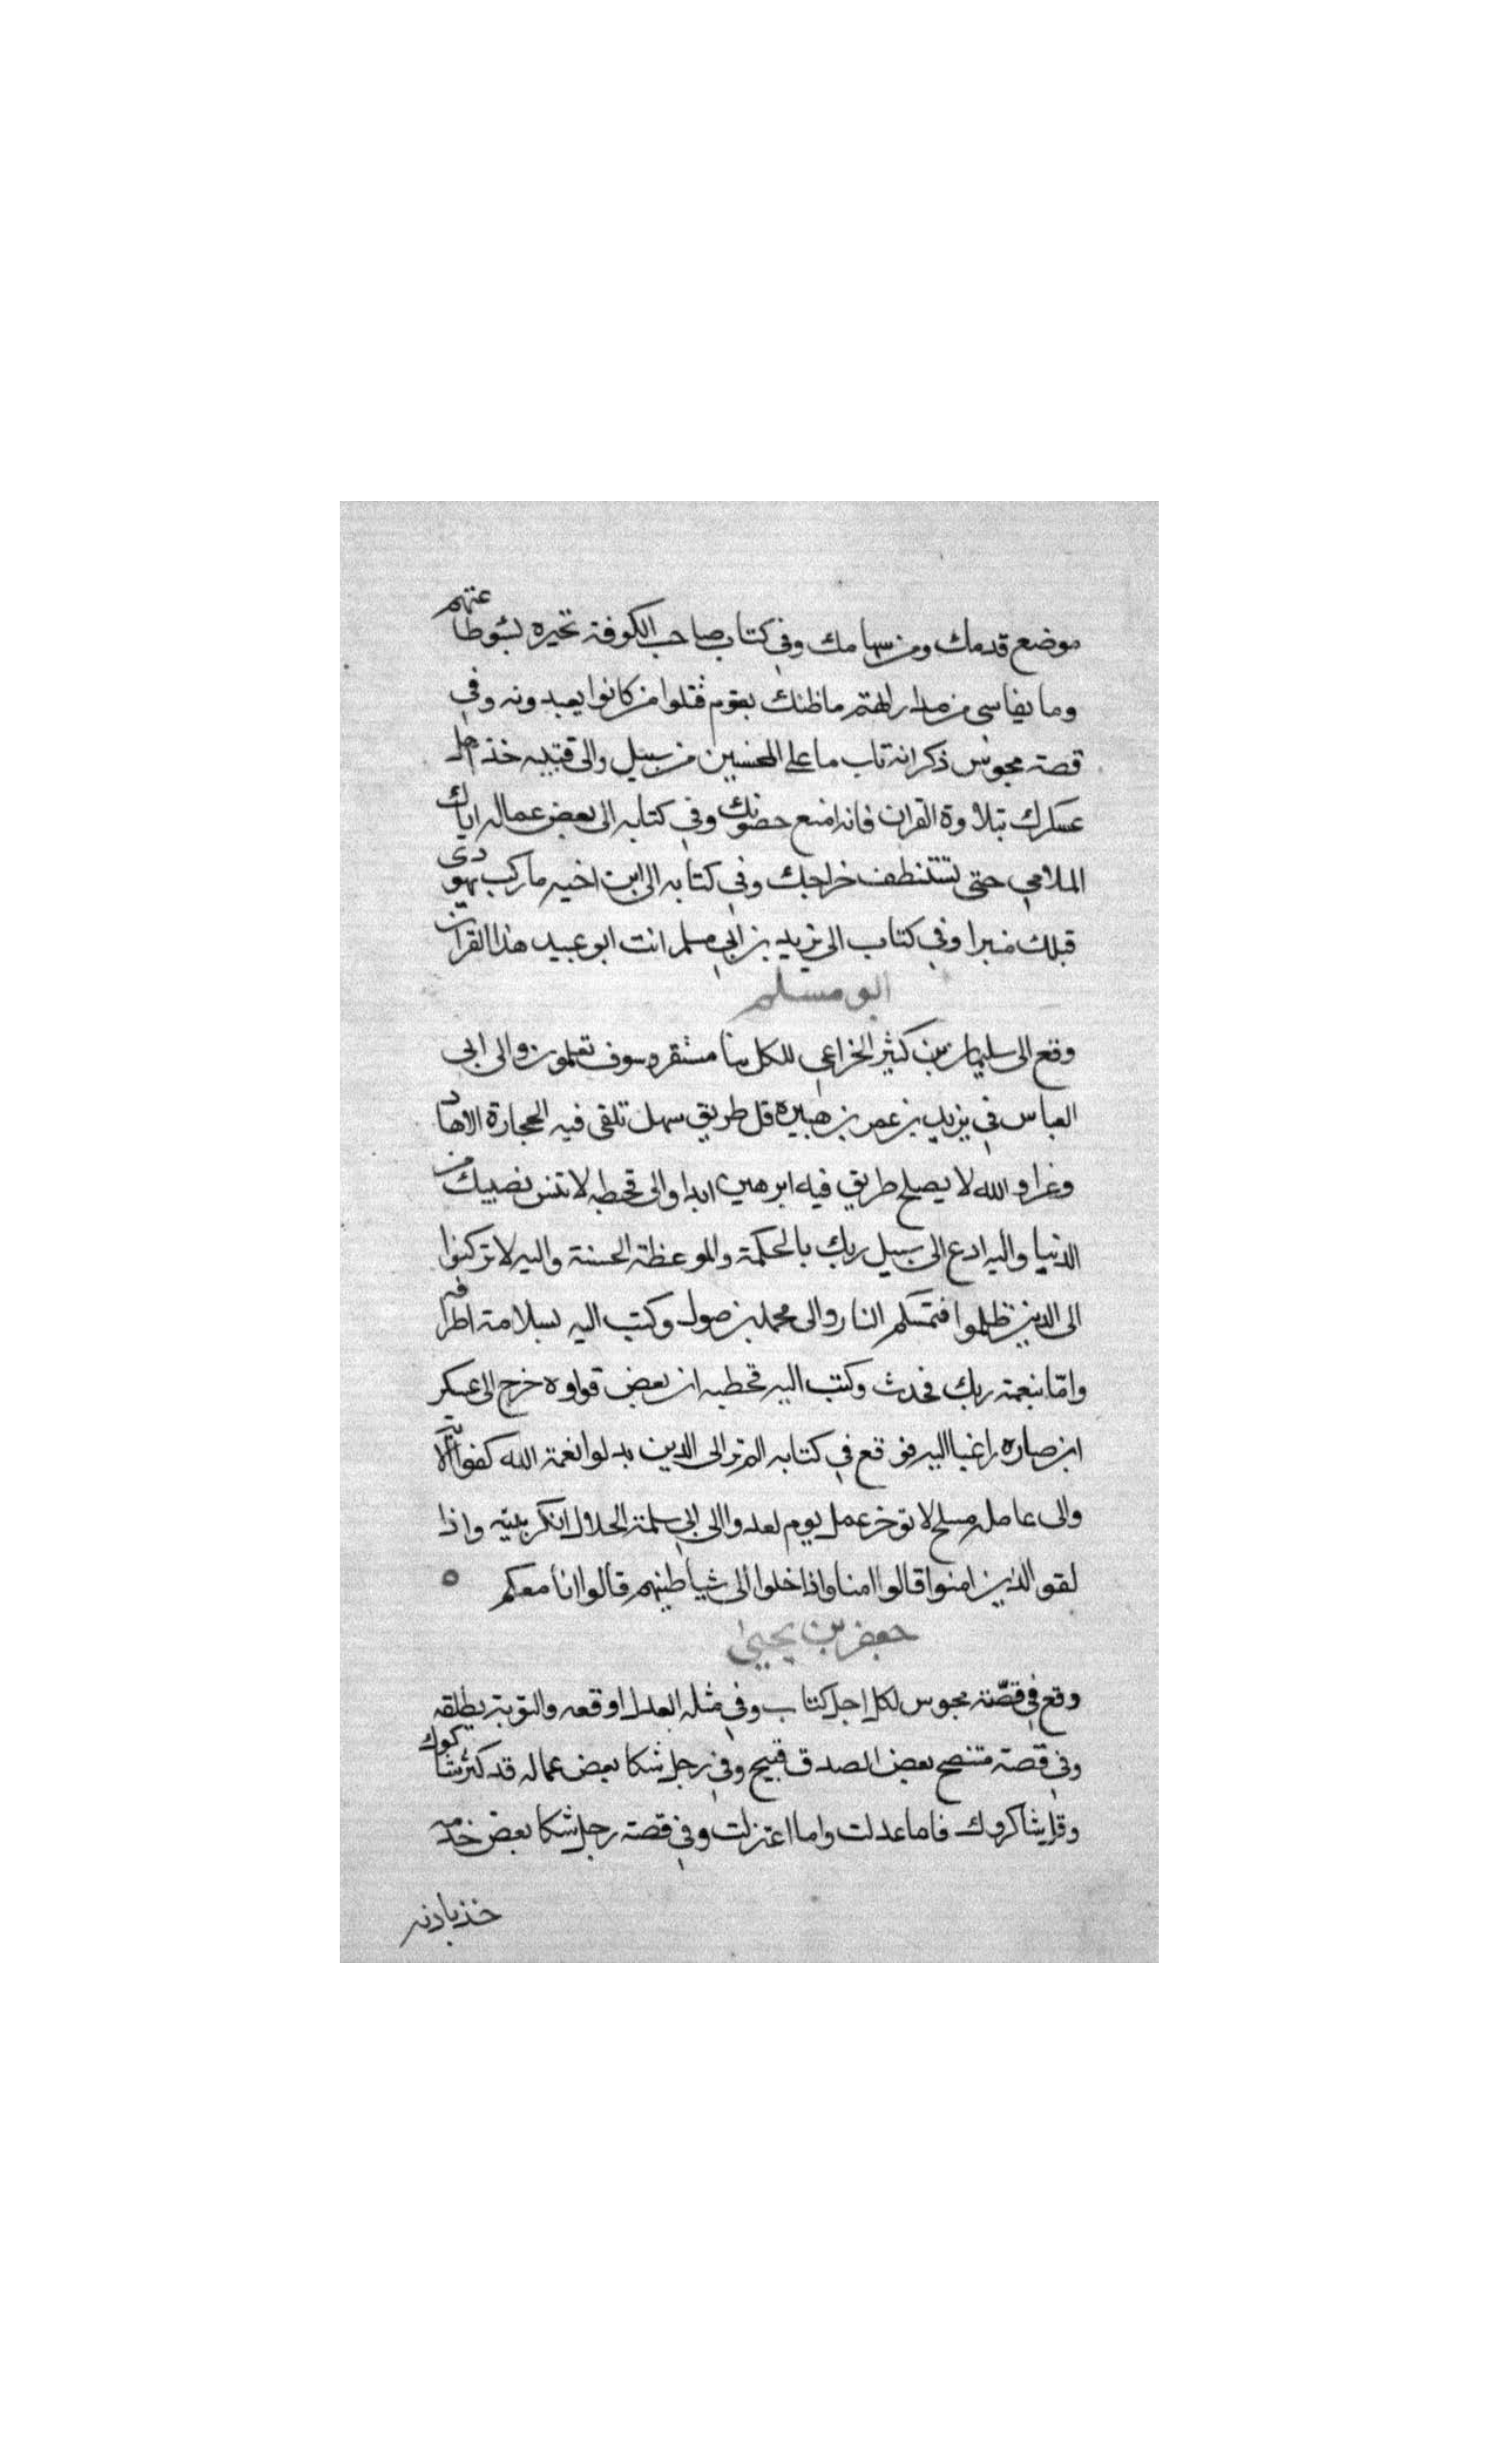 موضع قدمك ومن سهامك وفي كتاب صاحب الكوفة تخيره بسوطا عتهم
وما يقاسي من مداراهتم ماظنك بقوم قتلوا من كانوا يعبدونه وفي
قصة محبوس ذكر انه تاب ما على المحسنين من سبيل والى قتيبه خذ اهل
عسكرك بتلاوة القران فانه امنع حصونك وفي كتابه الى بعض عماله اياك
الملاهي حتى تستنطف خراجك وفي كتابه الى ابن اخيه ما ركب يهودى
قبلك منبرا وفي كتاب الى يزيد بن ابي مسلم انت ابو عبيد هذا القرآن
ابو مسلم
وقع الى سليمان بن كثير الخزاعي لكل نبا مستقر وسوف تعلمون والى ابى
العباس في يزيد بن عمر بن هبيرة قل طريق سهل تلقى فيه الحجارة الا عاد
وعرا والله لا يصلح طريق فيه ابن هبيره ابدا والى قحطبه لا تنس نصيبك من
الدنيا واليه ادع الى سبيل ربك بالحكمة والموعظة الحسنة واليه لا تركنوا
الى الذين ظلموا فتمسكم النار والى محمد بن صول وكتب اليه بسلامة اطرافه
وامّا بنعمة ربك فحدث وكتب اليه قحطبه ان بعض قواده خرج الى عسكر
ابن ضباره راغبا اليه فوقع في كتابه الم تر الى الذين بدلوا نعمة الله كفرا الآية
والى عامله ببلخ لا توخر عمل يوم لغد والى ابي سلمة الخلال انكر بيته واذا
لقو الذين امنوا قالوا امنا واذا خلوا الى شياطينهم قالوا انا معكم ٥
جعفر بن يحيى
وقع في قصّة محبوس لكل اجل كتاب وفي مثله العدل اوقعه والتوبة يطلقه
وفي قصة متنصح بعض الصدق قبيح وفي رجل شكا بعض عماله قد كثر شاكوك
وقل شاكروك فاما عدلت واما اعتزلت وفي قصة رجل شكا بعض خدمه
خذ باذنه